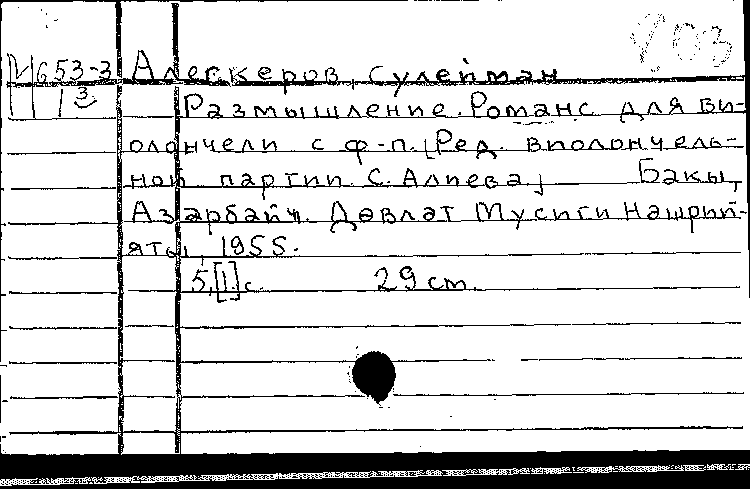 903
М653-3 Алескеров, Сулейман
3
Размышление. Романс для ви-
олончели с ф-п. [Ред. виолончель-
ной партии С. Алиева.] Бакы,
Азәрбайҹ. Дөвләт Мусиги Нәшрий-
яты, 1955.
5,[1] с. 29 см.